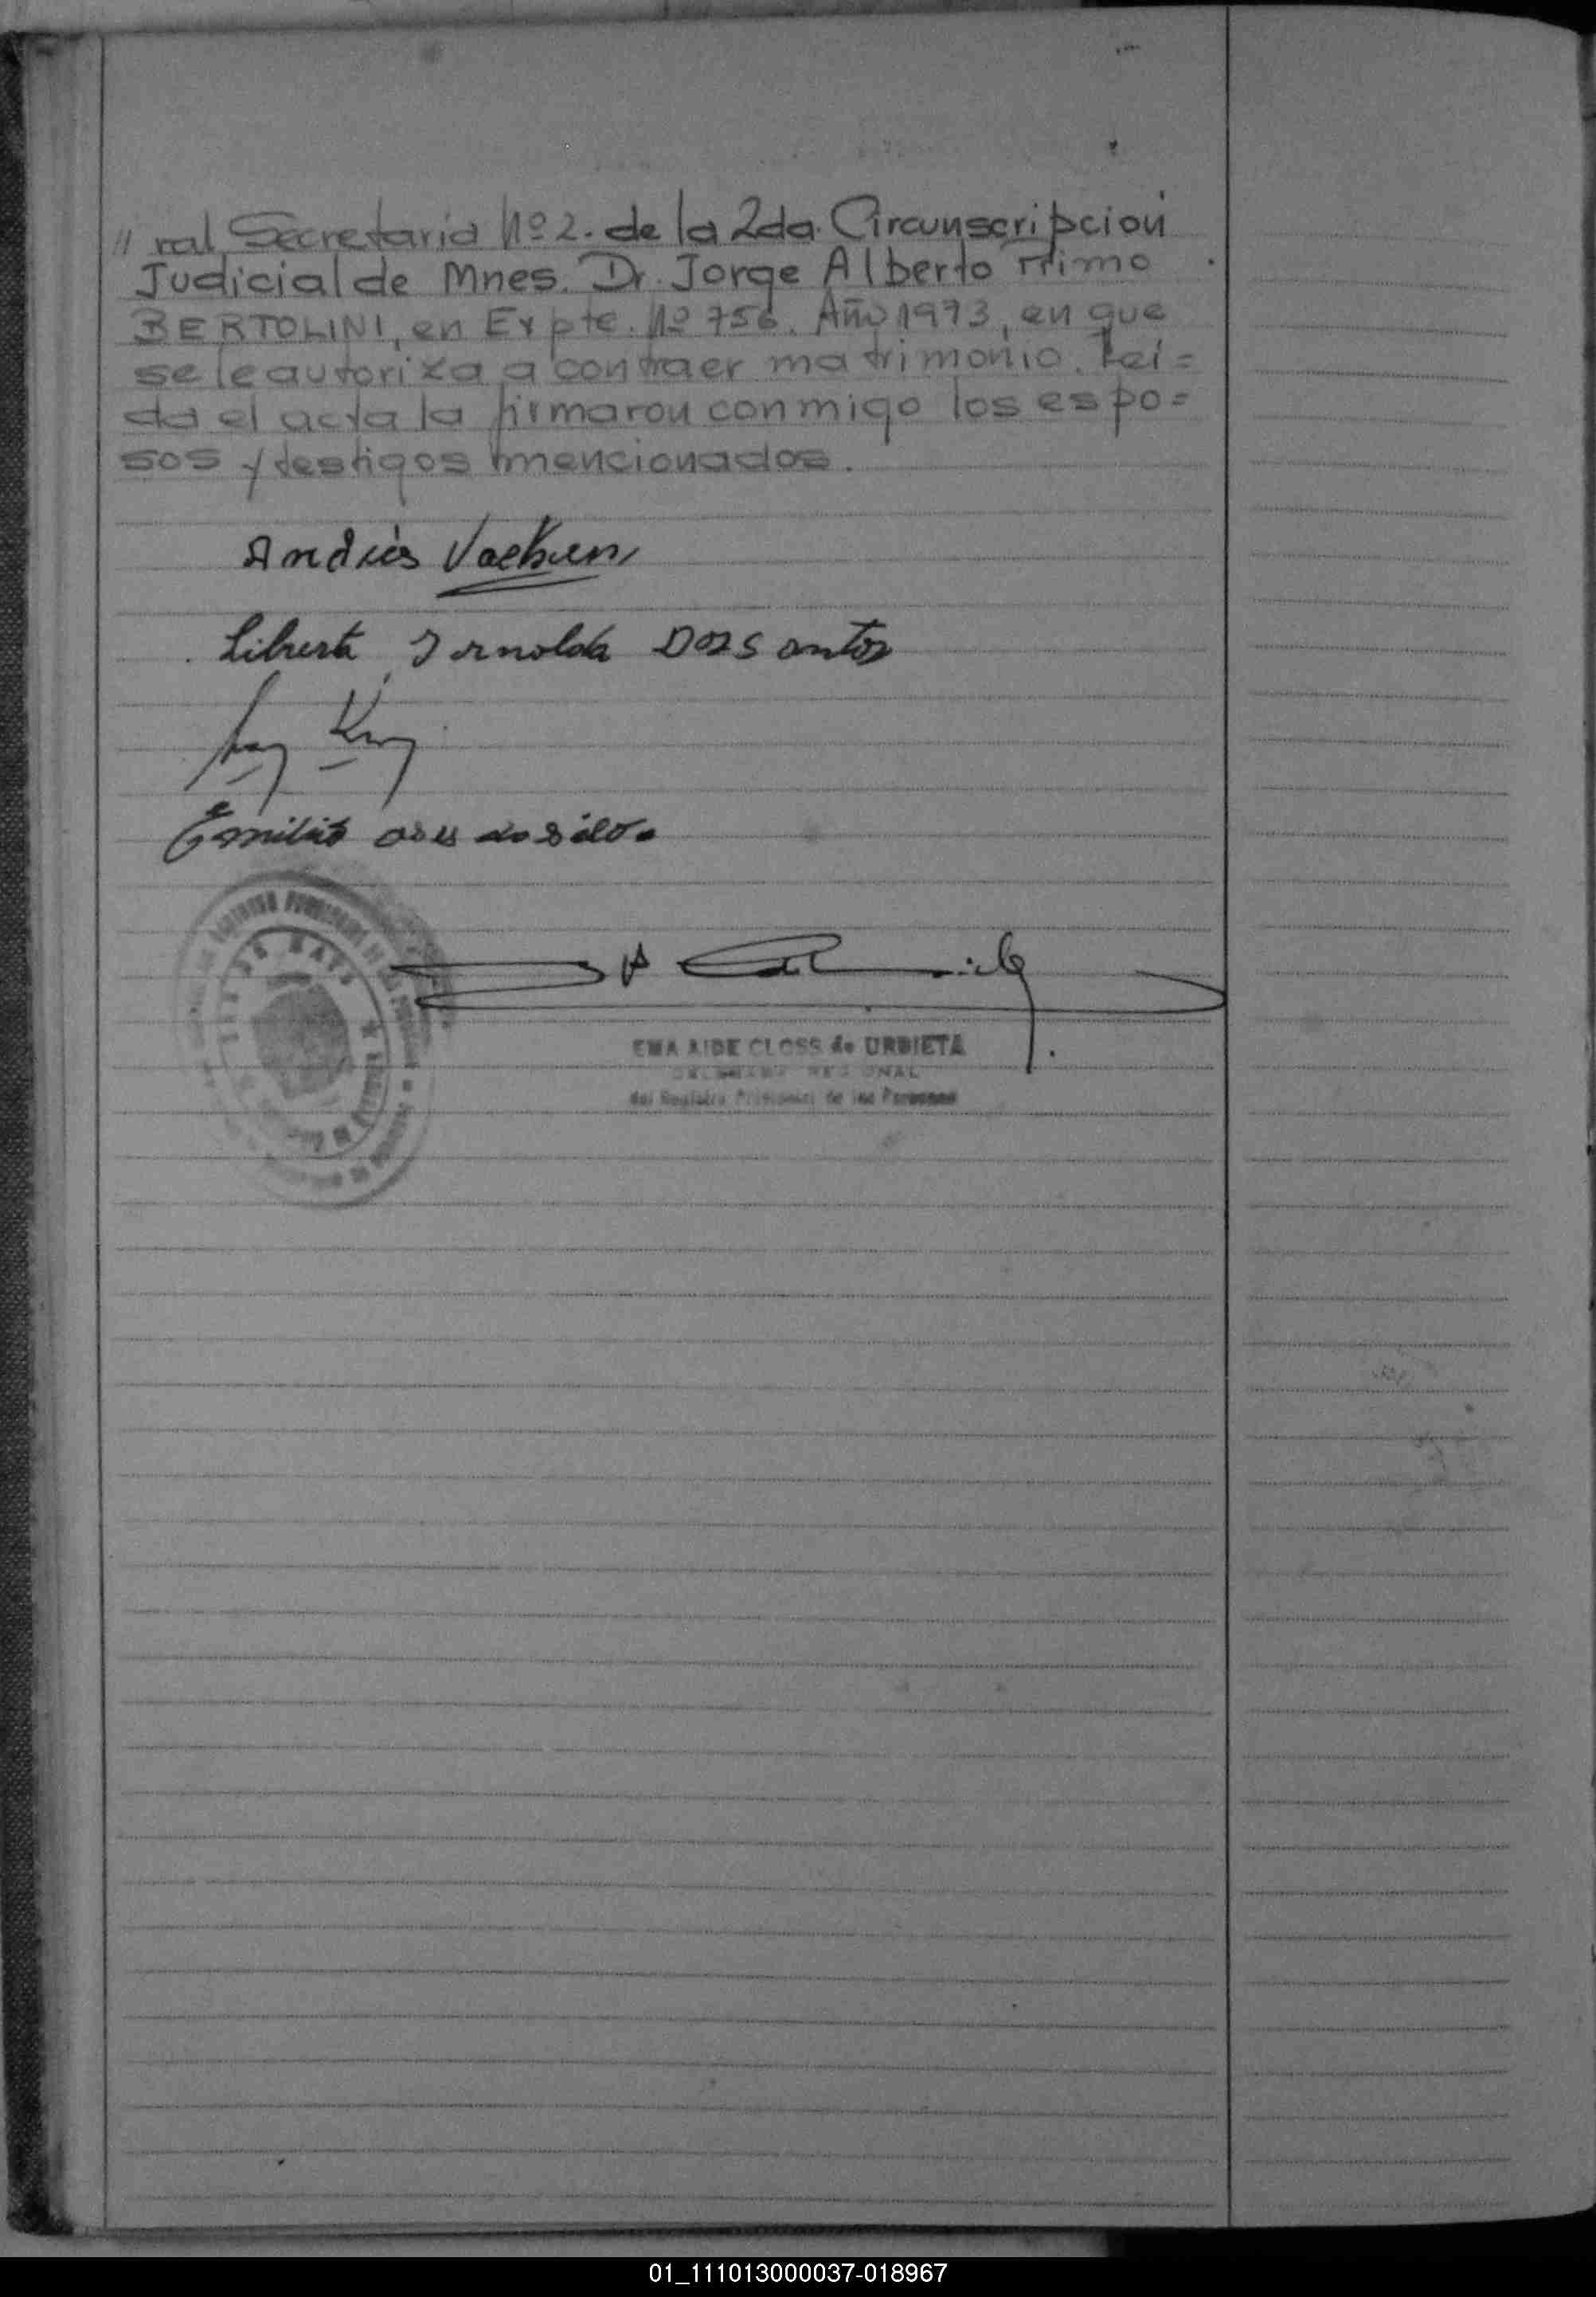 // ral Secretaria Nº 2. de la 2da. Circunscripción
Judicial de Mnes. Dr. Jorge Alberto Primo
BERTOLINI, en Expte. Nº 756. Año 1973, en que
se le autoriza a contraer matrimonio. Leí=
da el acta la firmaron conmigo los espo=
sos y testigos mencionados.
Andrés
Liberta Dos Santos
EMA AIDE CLOSS de URBIETA
DELEGADO REGIONAL
del Registro Provincial de las Personas
01_111013000037-018967